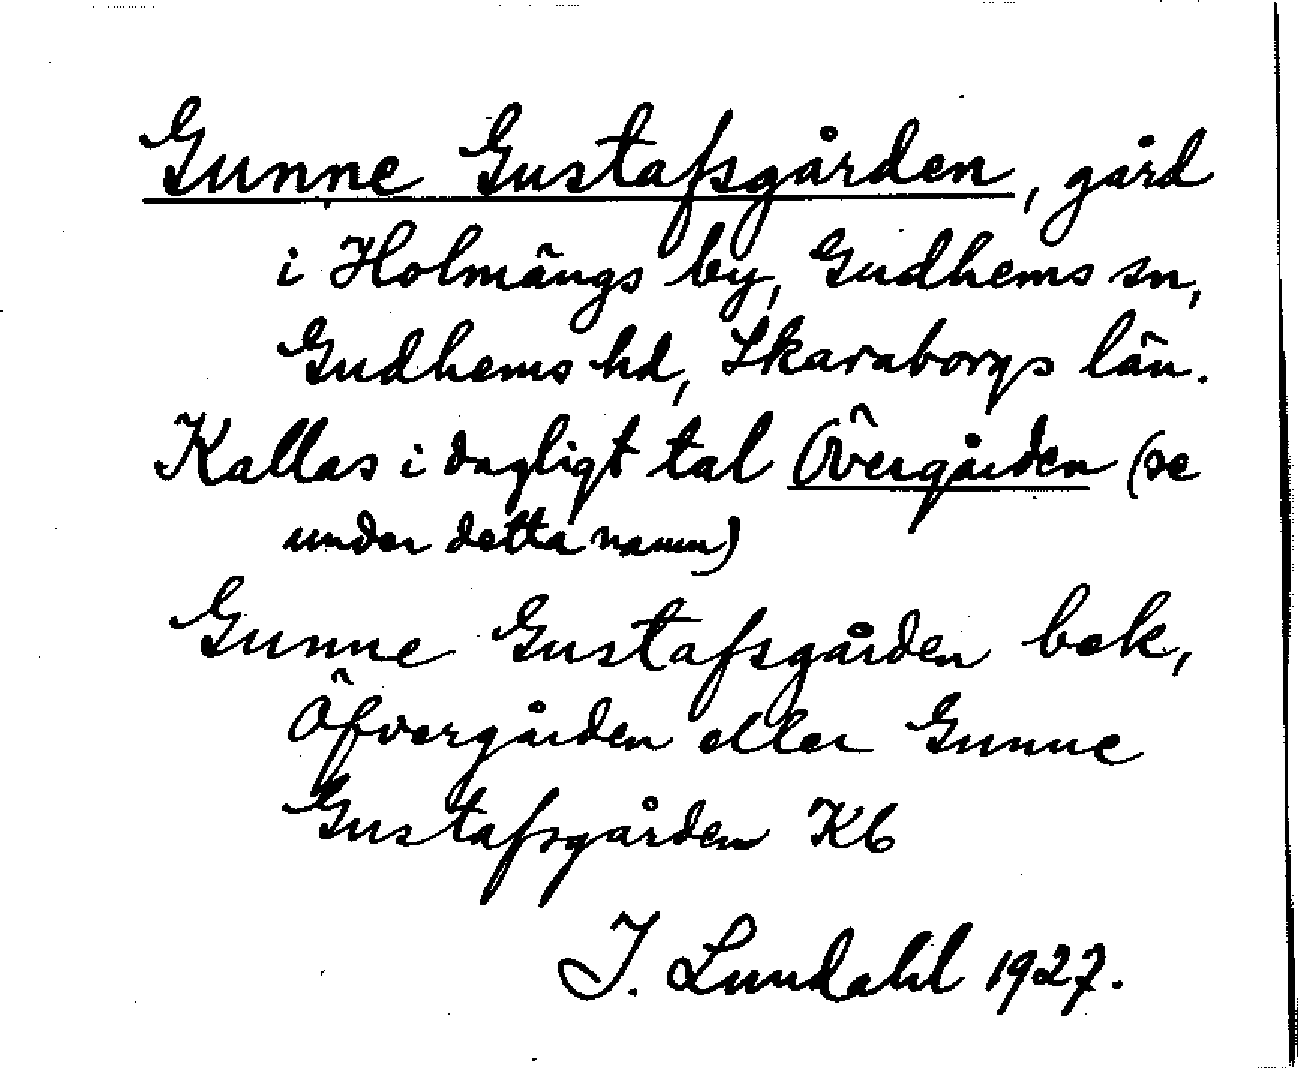 Gunne Gustafsgården, gård
i Holmängs by, Gudhems sn,
Gudhems hd, Skaraborgs län.
Kallas i dagligt tal Övergården (se
under detta namn)
Gunne Gustafsgården bek,
Öfvergården eller Gunne
Gustafsgården Kb
I. Lundahl 1927.